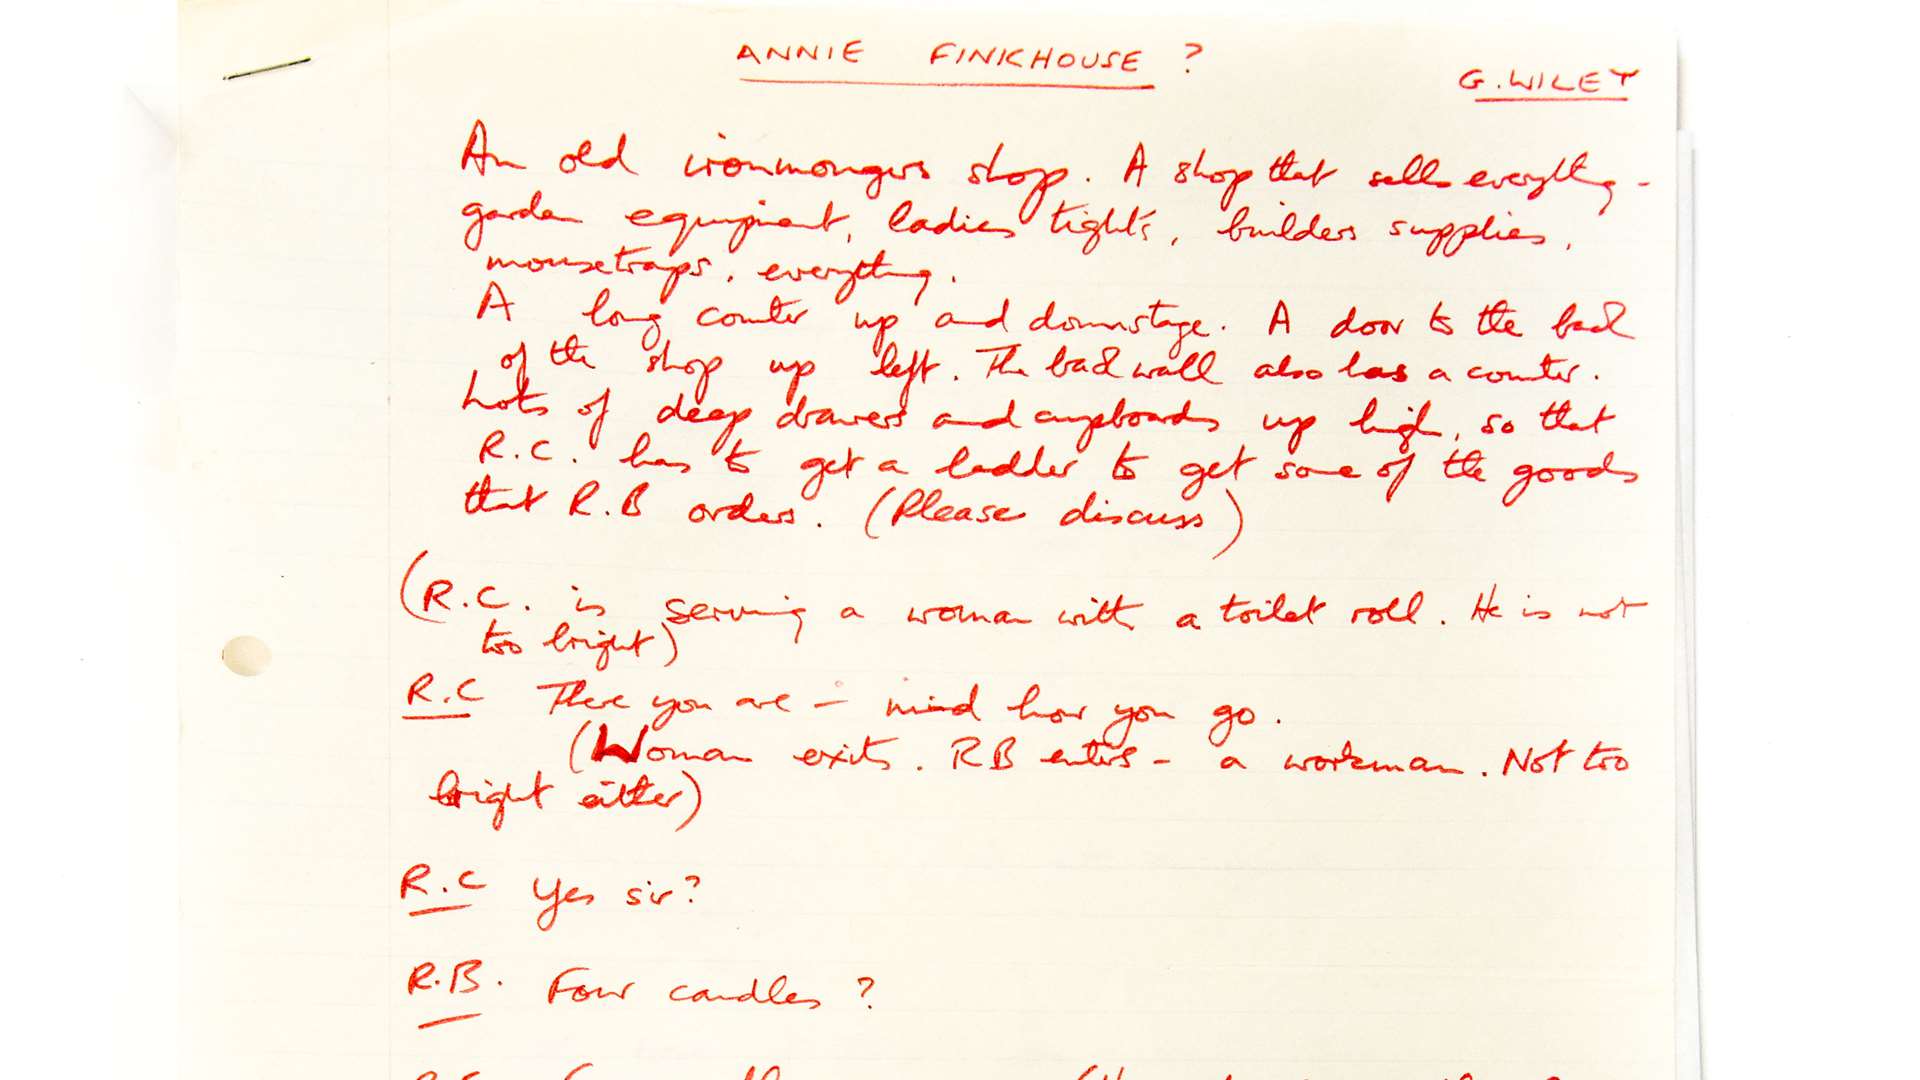 ANNIE FINKHOUSE?
G. WILEY
An old ironmongers shop. A shop that sells everything -
garden equipment, ladies tights, builders supplies,
mousetraps, everything.
A long counter up and downstage. A door to the back
of the shop up left. The back wall also has a counter.
Lots of deep drawers and cupboards up high, so that
R.C. has to get a ladder to get some of the goods
that R.B orders. (Please discuss)
(R.C. is serving a woman with a toilet roll. He is not
too bright)
R.C There you are - mind how you go.
(Woman exits. RB enters - a workman. Not too
bright either)
R.C Yes sir?
R.B. Four candles?